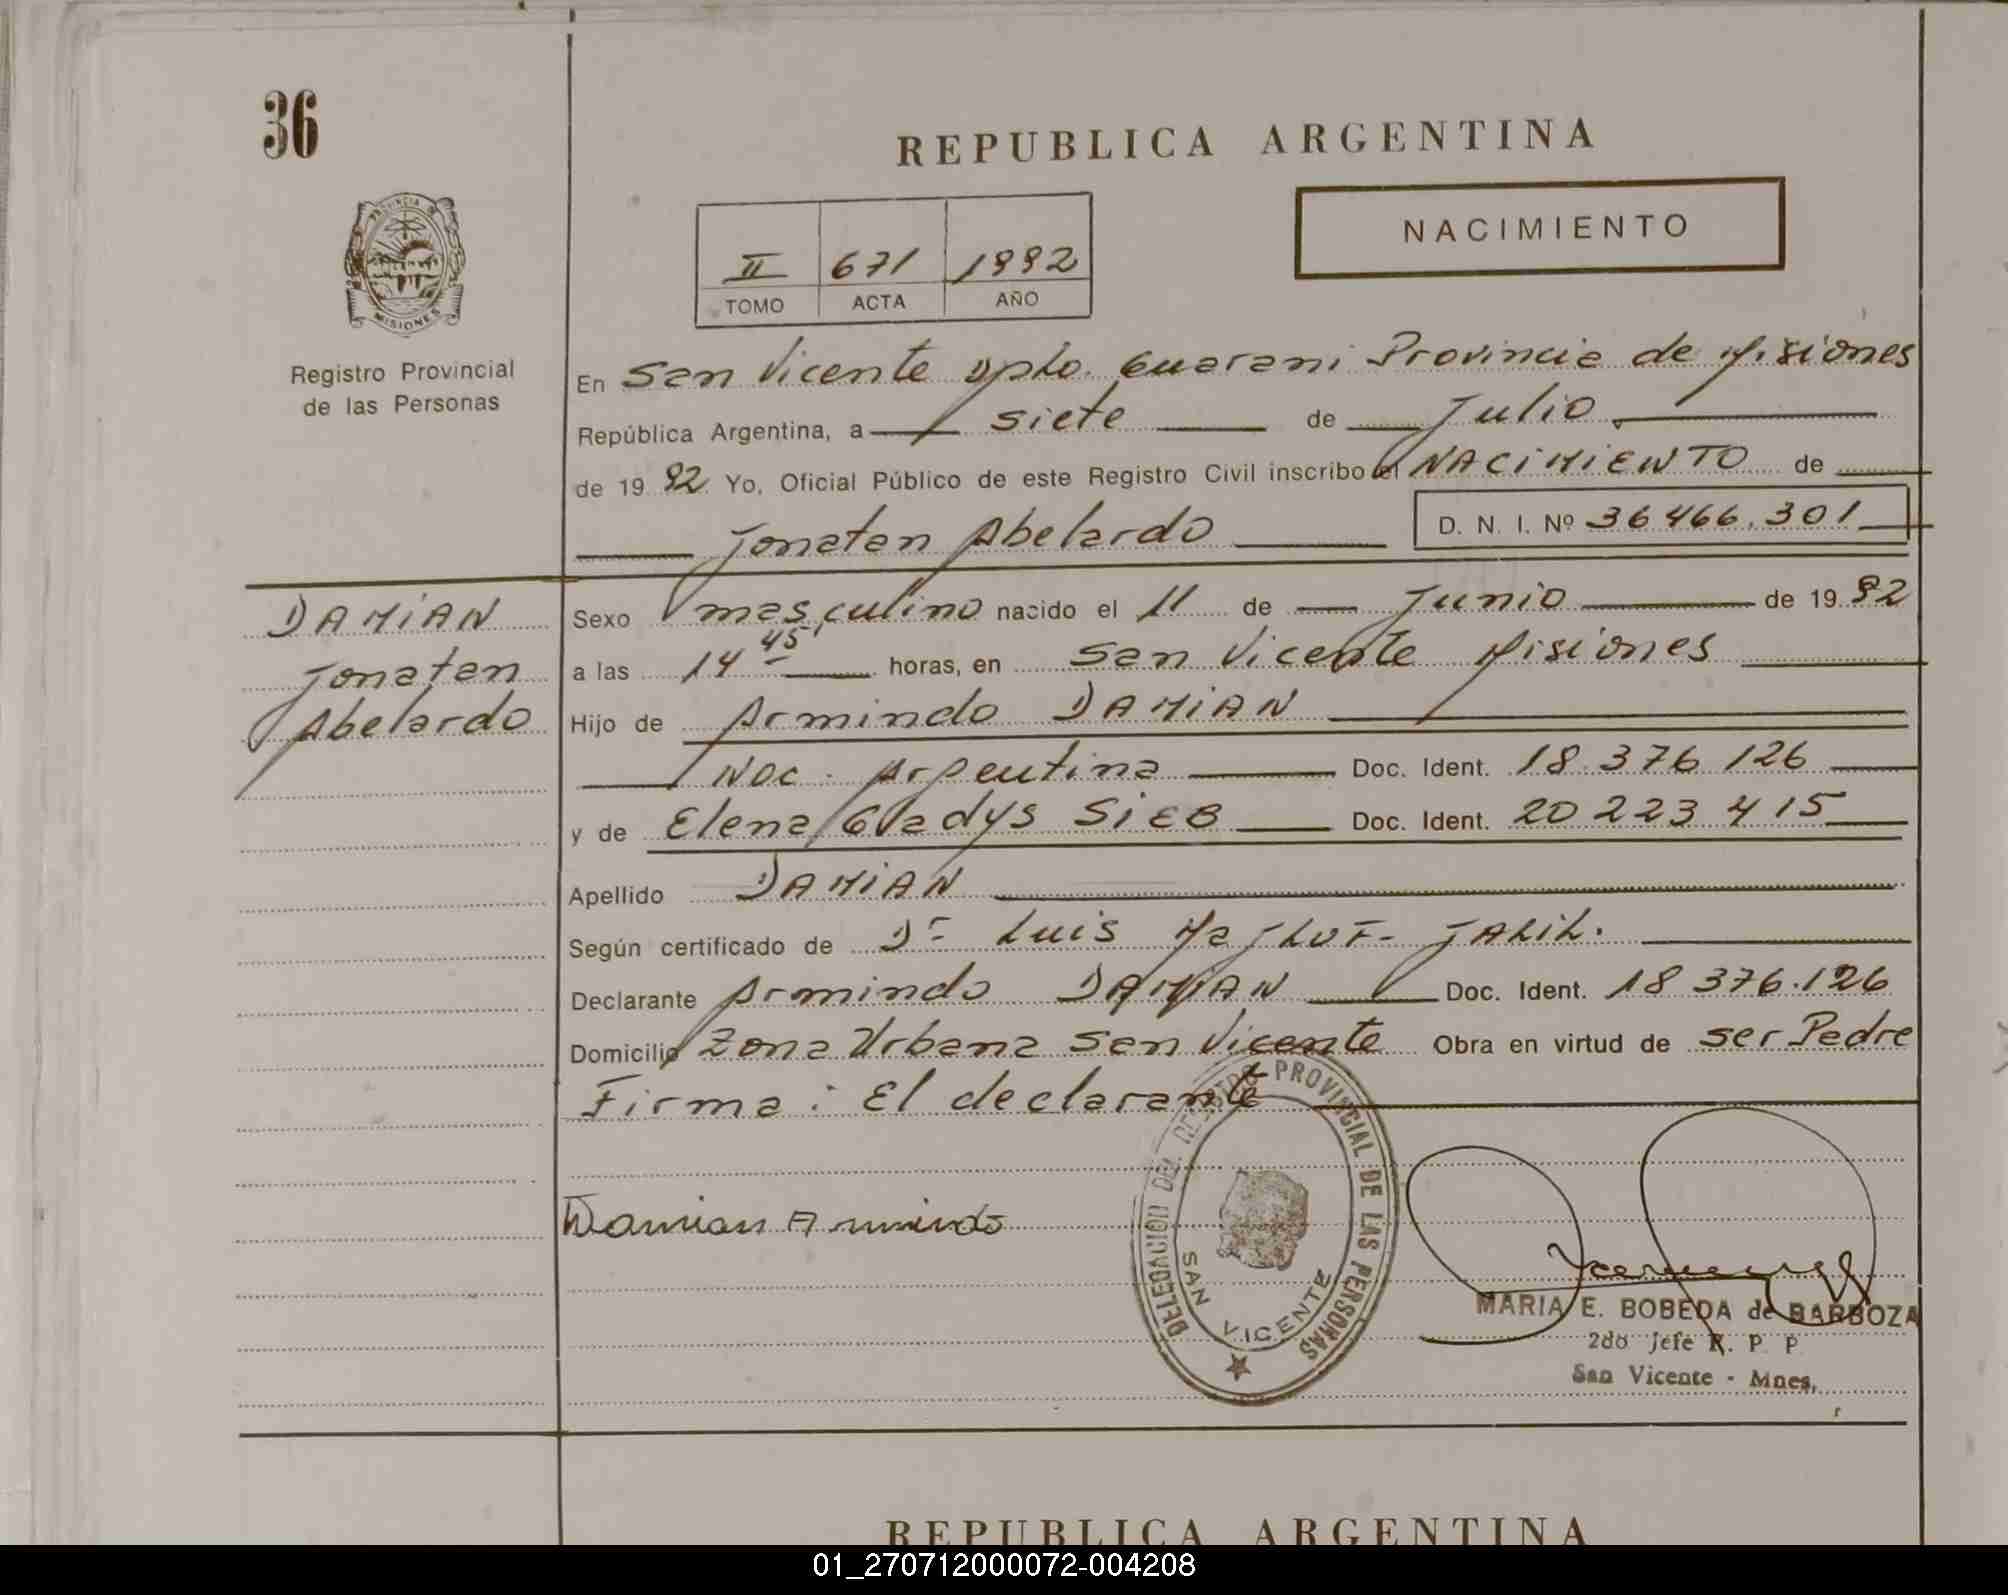 36
REPUBLICA ARGENTINA
NACIMIENTO
II 671 1992
TOMO ACTA AÑO
PROVINCIA DE
MISIONES
Registro Provincial
de las Personas
En San Vicente Dpto. Guarani Provincia de Misiones
República Argentina, a siete de Julio
de 1992. Yo, Oficial Público de este Registro Civil inscribo el NACIMIENTO de
Jonatan Abelardo D. N. I. Nº 36466.301
DAMIAN
Jonatan
Abelardo
Sexo masculino nacido el 11 de Junio de 1992
a las 14 45 horas, en San Vicente Misiones
Hijo de Armindo DAMIAN
Nac. Argentina Doc. Ident. 18.376 126
y de Elena Gladys SIEB Doc. Ident. 20 223 415
Apellido DAMIAN
Según certificado de Dr Luis JALIL.
Declarante Armindo DAMIAN Doc. Ident. 18 376.126
Domicilio Zona Urbana San Vicente Obra en virtud de ser Padre
Firma: El declarante
Damian Armindo
DELEGACION DEL REGISTRO PROVINCIAL DE LAS PERSONAS
SAN VICENTE
MARIA E. BOBEDA de BARBOZA
2do Jefe R. P. P
San Vicente - Mnes,
REPUBLICA ARGENTINA
01_270712000072-004208